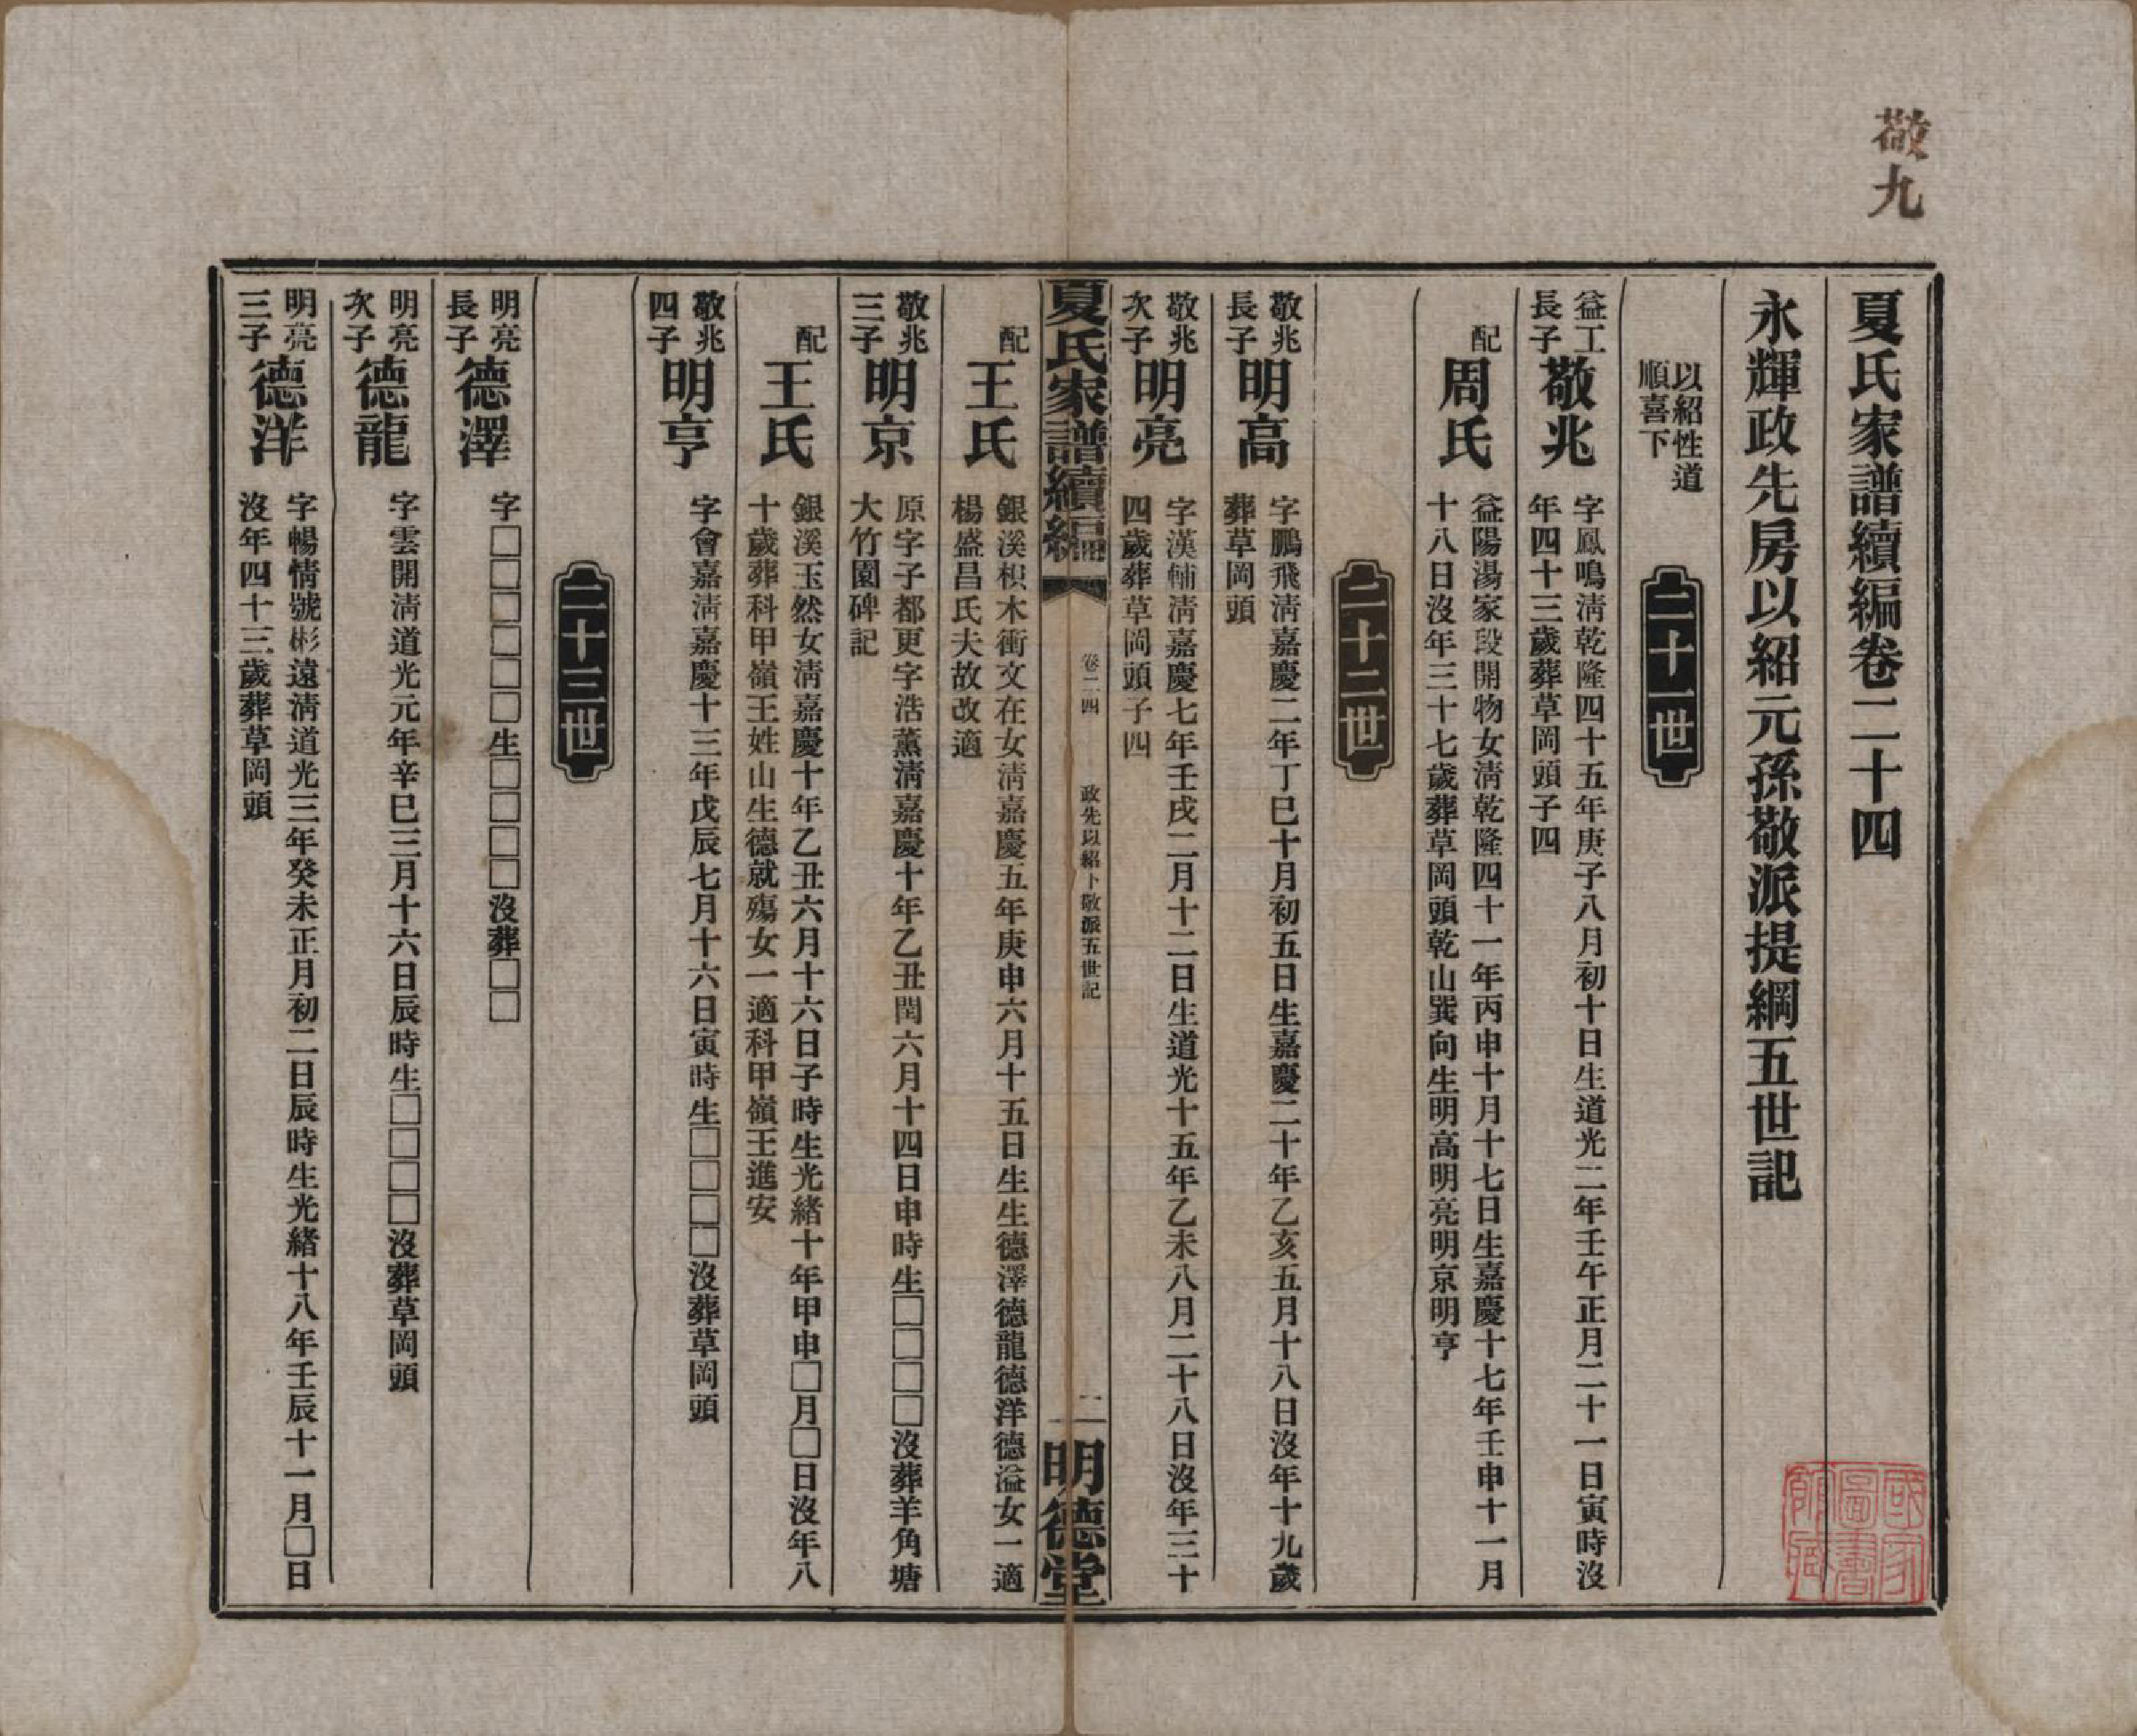 敬九
夏氏家譜續編卷二十四
永輝政先房以紹元孫敬派提綱五世記
以紹性道
順喜下
二十一世
益工
長子
敬兆
字鳳鳴淸乾隆四十五年庚子八月初十日生道光二年壬午正月二十一日寅時沒
年四十三歲葬草岡頭子四
配
周氏
益陽湯家段開物女淸乾隆四十一年丙申十月十七日生嘉慶十七年壬申十一月
十八日沒年三十七歲葬草岡頭乾山巽向生明高明亮明京明亨
二十二世
敬兆
長子
明高
字鵬飛淸嘉慶二年丁巳十月初五日生嘉慶二十年乙亥五月十八日沒年十九歲
葬草岡頭
敬兆
次子
明亮
字漢輔淸嘉慶七年壬戌二月十二日生道光十五年乙未八月二十八日沒年三十
四歲葬草岡頭子四
夏氏家譜續編
卷二四
政先以紹卜敬派五世記
二
明德堂
配
王氏
銀溪枳木衝文在女淸嘉慶五年庚申六月十五日生生德澤德龍德洋德溢女一適
楊盛昌氏夫故改適
敬兆
三子
明京
原字子都更字浩薰淸嘉慶十年乙丑閏六月十四日申時生□□□□沒葬羊角塘
大竹園碑記
配
王氏
銀溪玉然女淸嘉慶十年乙丑六月十六日子時生光緒十年甲申□月□日沒年八
十歲葬科甲嶺王姓山生德就殤女一適科甲嶺王進安
敬兆
四子
明亨
字會嘉淸嘉慶十三年戊辰七月十六日寅時生□□□□沒葬草岡頭
二十三世
明亮
長子
德澤
字□□□□□□生□□□□沒葬□□
明亮
次子
德龍
字雲開淸道光元年辛巳三月十六日辰時生□□□□沒葬草岡頭
明亮
三子
德洋
字暢情號彬遠淸道光三年癸未正月初二日辰時生光緒十八年壬辰十一月□日
沒年四十三歲葬草岡頭
國家
圖書
館藏